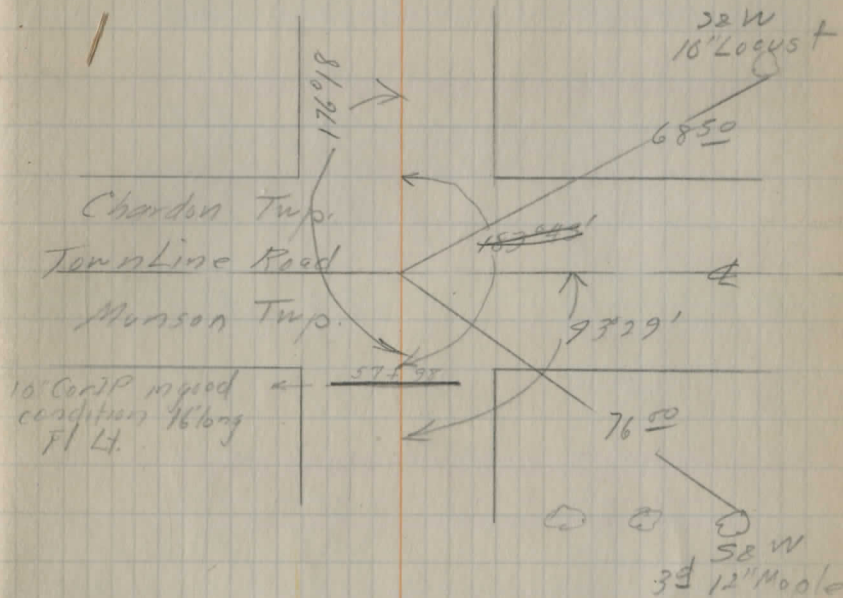 S & W
16" Locust
176°18'
68 50
Chardon Twp.
183°42'
Town Line Road
Munson Twp.
93°29'
57+98
10" Cor IP in good
condition 16' long
Fl Lt.
76 00
S & W
3d 12" Maple